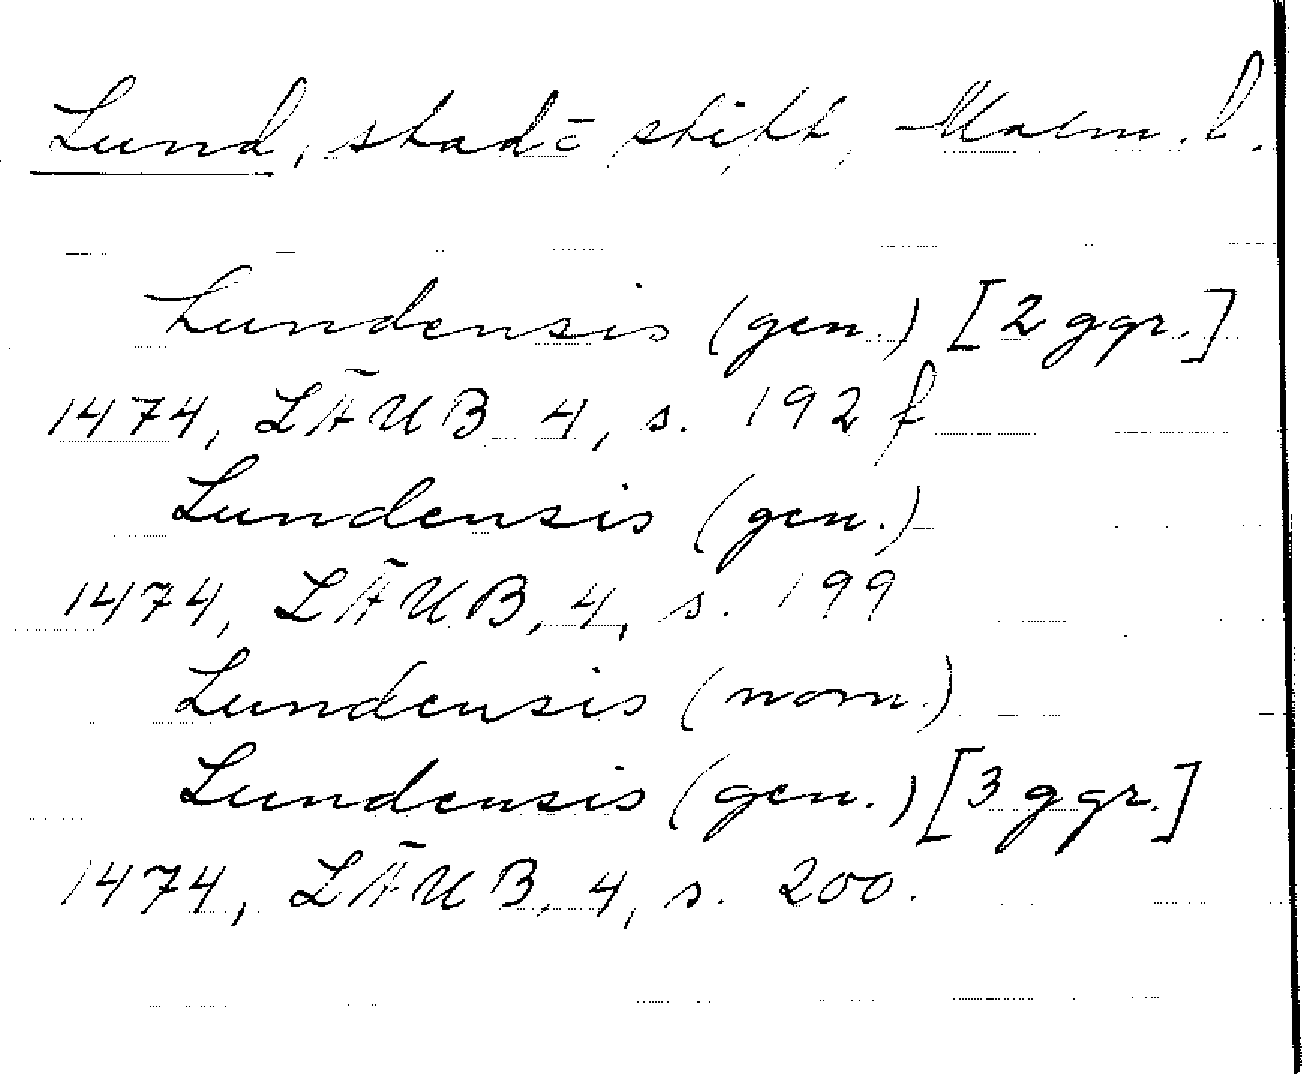 Lund, stad o stift, Malm. l.
Lundensis (gen.) [2 ggr.]
1474, LÄUB 4, s. 192 f
Lundensis (gen.)
1474, LÄUB, 4, s. 199
Lundensis (nom.)
Lundensis (gen.) [3 ggr.]
1474, LÄUB, 4, s. 200.